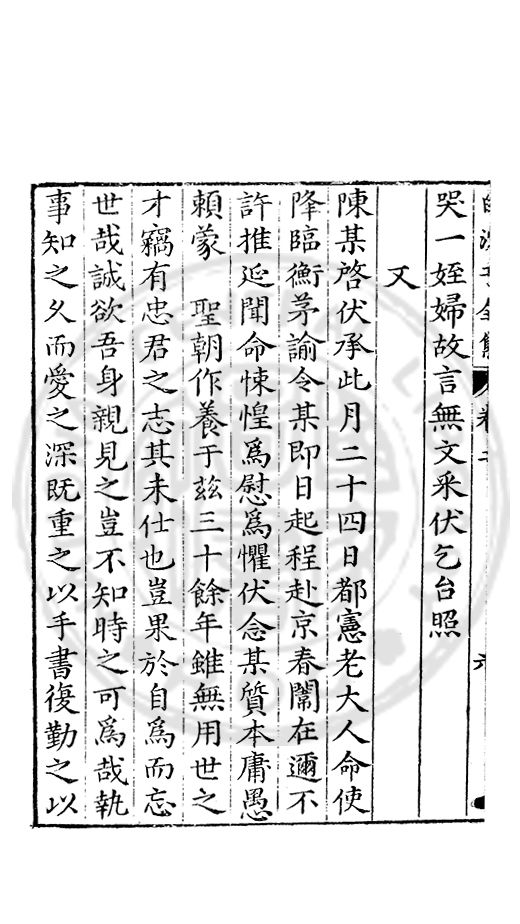 哭一姪婦故言無文采伏乞台照
又
陳某啓伏承此月二十四日都憲老大人命使
降臨衡茅諭令某即日起程赴京春闈在邇不
許推延聞命悚惶爲慰爲懼伏念某質本庸愚
賴蒙　聖朝作養于茲三十餘年雖無用世之
才竊有忠君之志其未仕也豈果於自爲而忘
世哉誠欲吾身親見之豈不知時之可爲哉執
事知之久而愛之深既重之以手書復勤之以